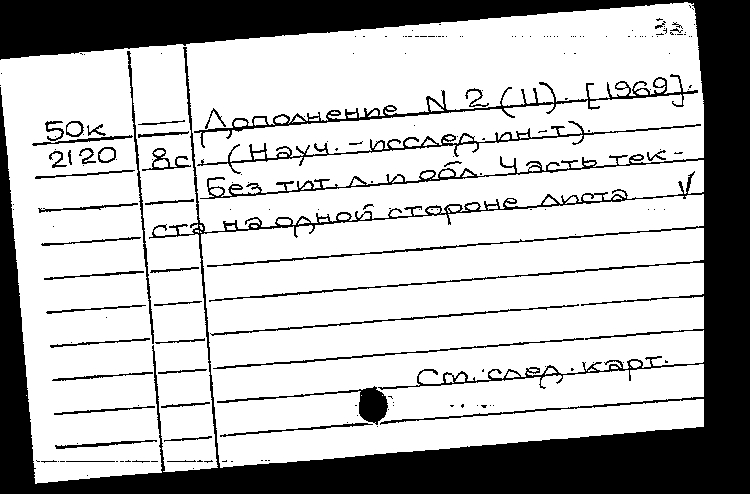 3а
50к — Дополнение N 2 (11). [1969].
2120 8с. (Науч.-исслед. ин-т).
Без тит. л. и обл. Часть тек-
ста на одной стороне листа V
См. след. карт.